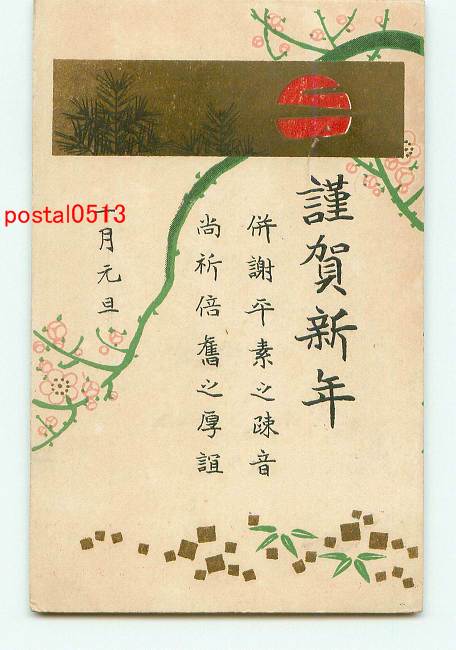 謹賀新年
併謝平素之疎音
尚祈倍舊之厚誼
一月元旦
postal0513